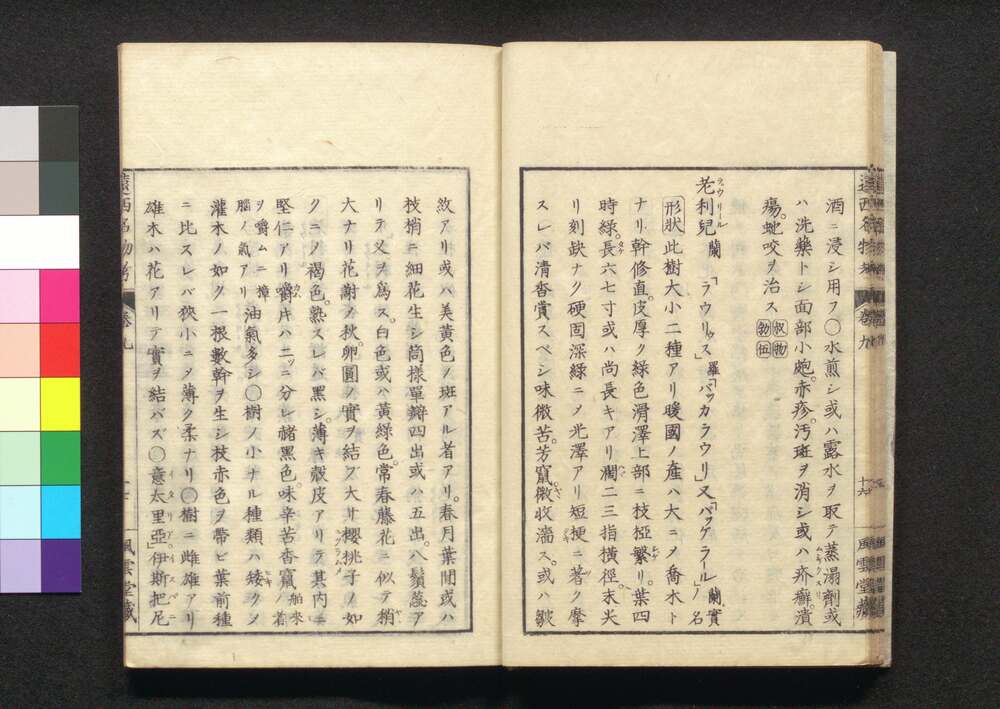 酒ニ浸シ用フ〇水煎シ或ハ露水ヲ取テ蒸溻劑或
ハ洗藥トシ面部小皰。赤疹。汚斑ヲ消シ或ハ疥癬。潰
瘍。蛇咬ヲ治ス
老利兒 蘭「ラウリッス」羅「バッカラウリ」又「バッケラール」蘭實ノ名
形狀此樹大小二種アリ暖國ノ産ハ大ニノ喬木ト
ナリ幹修直。皮厚ク綠色滑澤上部ニ枝椏繁リ。葉四
時綠。長六七寸或ハ尚長キアリ濶二三指橫徑。末尖
リ刻缺ナク硬固深綠ニノ光澤アリ短梗ニ著ク摩
スレバ清香賞スベシ味微苦。芳竄。微收濇ス。或ハ皺
紋アリ或ハ美黃色ノ斑アル者アリ。春月葉間或ハ
枝梢ニ細花生シ筒樣單瓣四出或ハ五出。八鬚蕊ア
リテ叉ヲ爲ス。白色或ハ黃綠色。常春藤花ニ似テ稍
大ナリ花謝ノ秋卵圓ノ實ヲ結ブ大サ櫻桃子ノ如
クニノ褐色。熟スレバ黑シ。薄キ殼皮アリテ其内ニ
堅仁アリ嚼ハ二ッニ分レ赭黑色。味辛苦香竄舶來ノ者
ヲ嚼ムニ樟腦ノ氣アリ油氣多シ〇樹ノ小ナル種類ハ矮クノ
灌木ノ如ク一根數幹ヲ生シ枝赤色ヲ帶ビ葉前種
ニ比スレバ狹小ニノ薄ク柔ナリ〇樹ニ雌雄アリ
雄木ハ花アリテ實ヲ結バズ〇意太里亞」伊斯把尼
卷九
十六
風雲堂藏